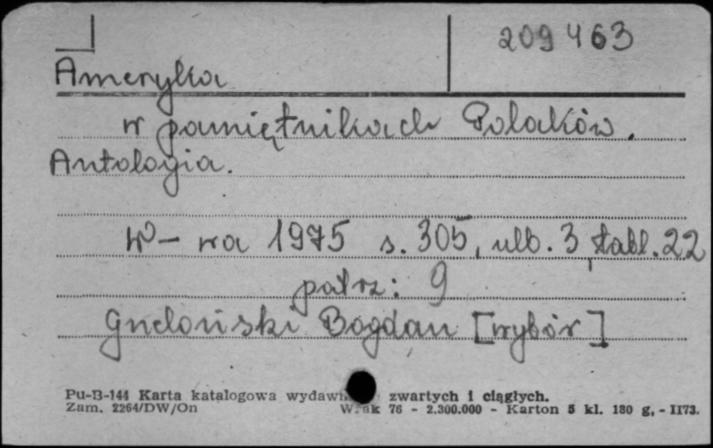 209463
Ameryka
w pamiętnikach Polaków.
Antologia.
W-wa 1975 s. 305, nlb. 3, tabl. 22
patrz: 9
Grzeloński Bogdan [wybór]
Pu-B-144 Karta katalogowa wydawn zwartych i ciągłych.
Zam. 2264/DW/On W. ak 76 - 2.300.000 - Karton 5 kl. 180 g. - II73.